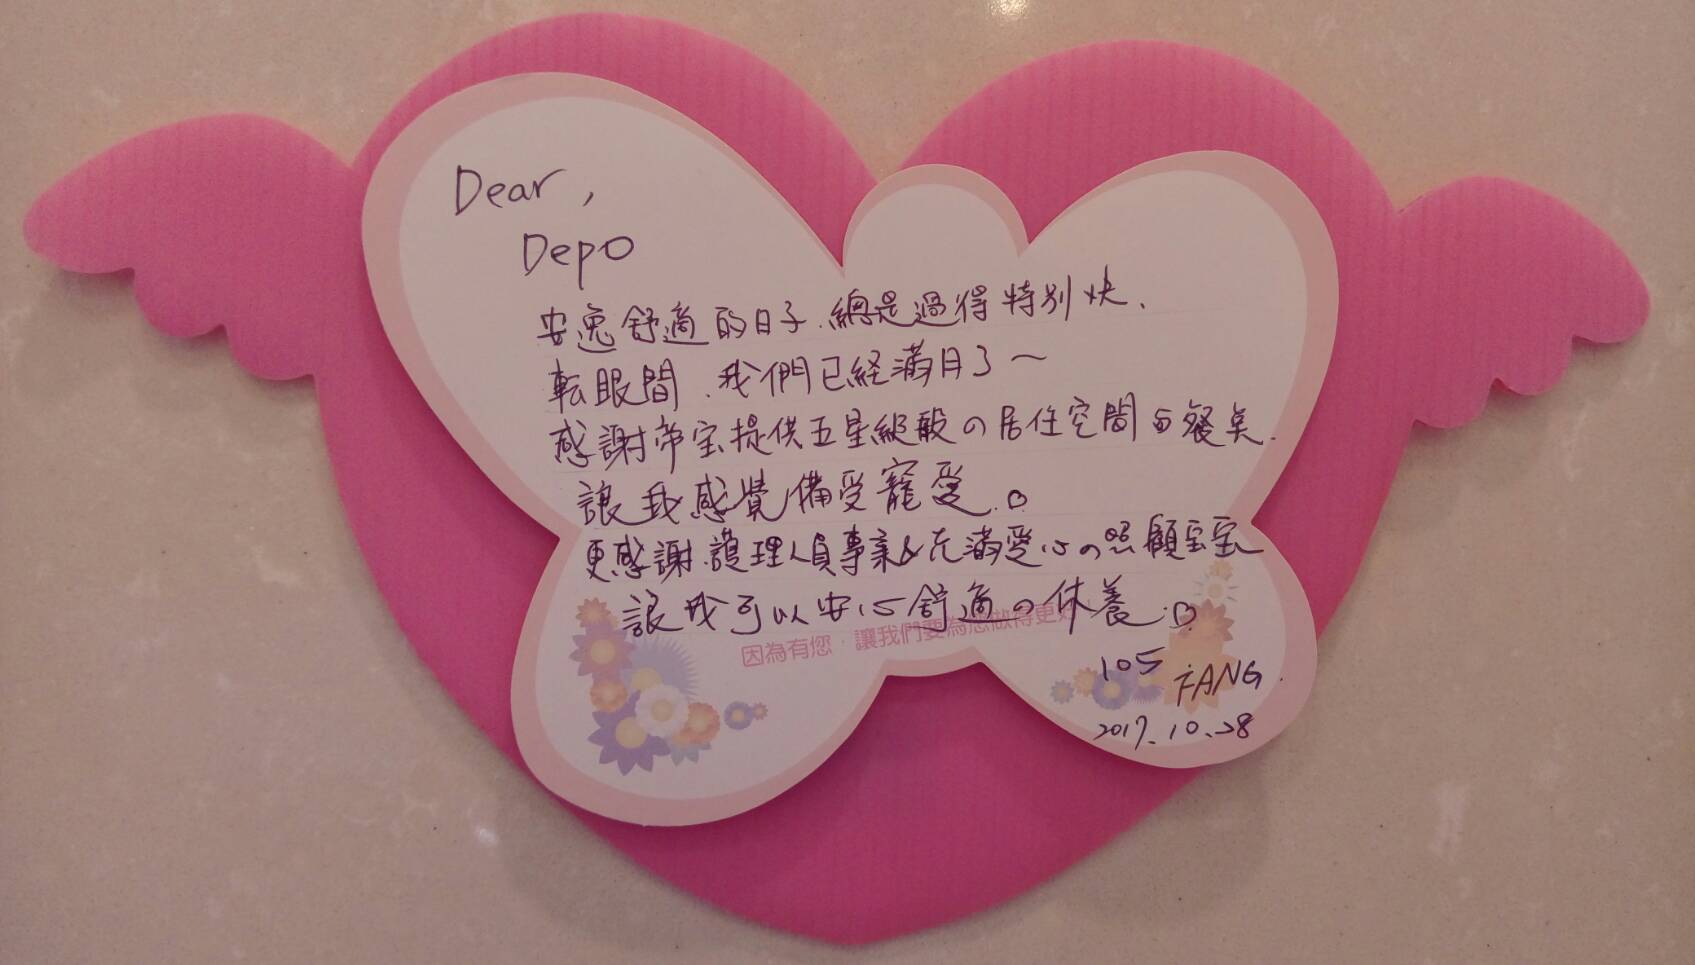 Dear,
Depo
安逸舒適的日子.總是過得特別快.
転眼間.我們已経滿月了～
感謝帝宝提供五星級般の居住空間与餐点.
讓我感覺備受寵愛.D
更感謝護理人員專業&充滿愛心の照顧宝宝
讓我可以安心舒適の休養:D
因為有您，讓我們要為您做得更好
105 FANG.
2017.10.28